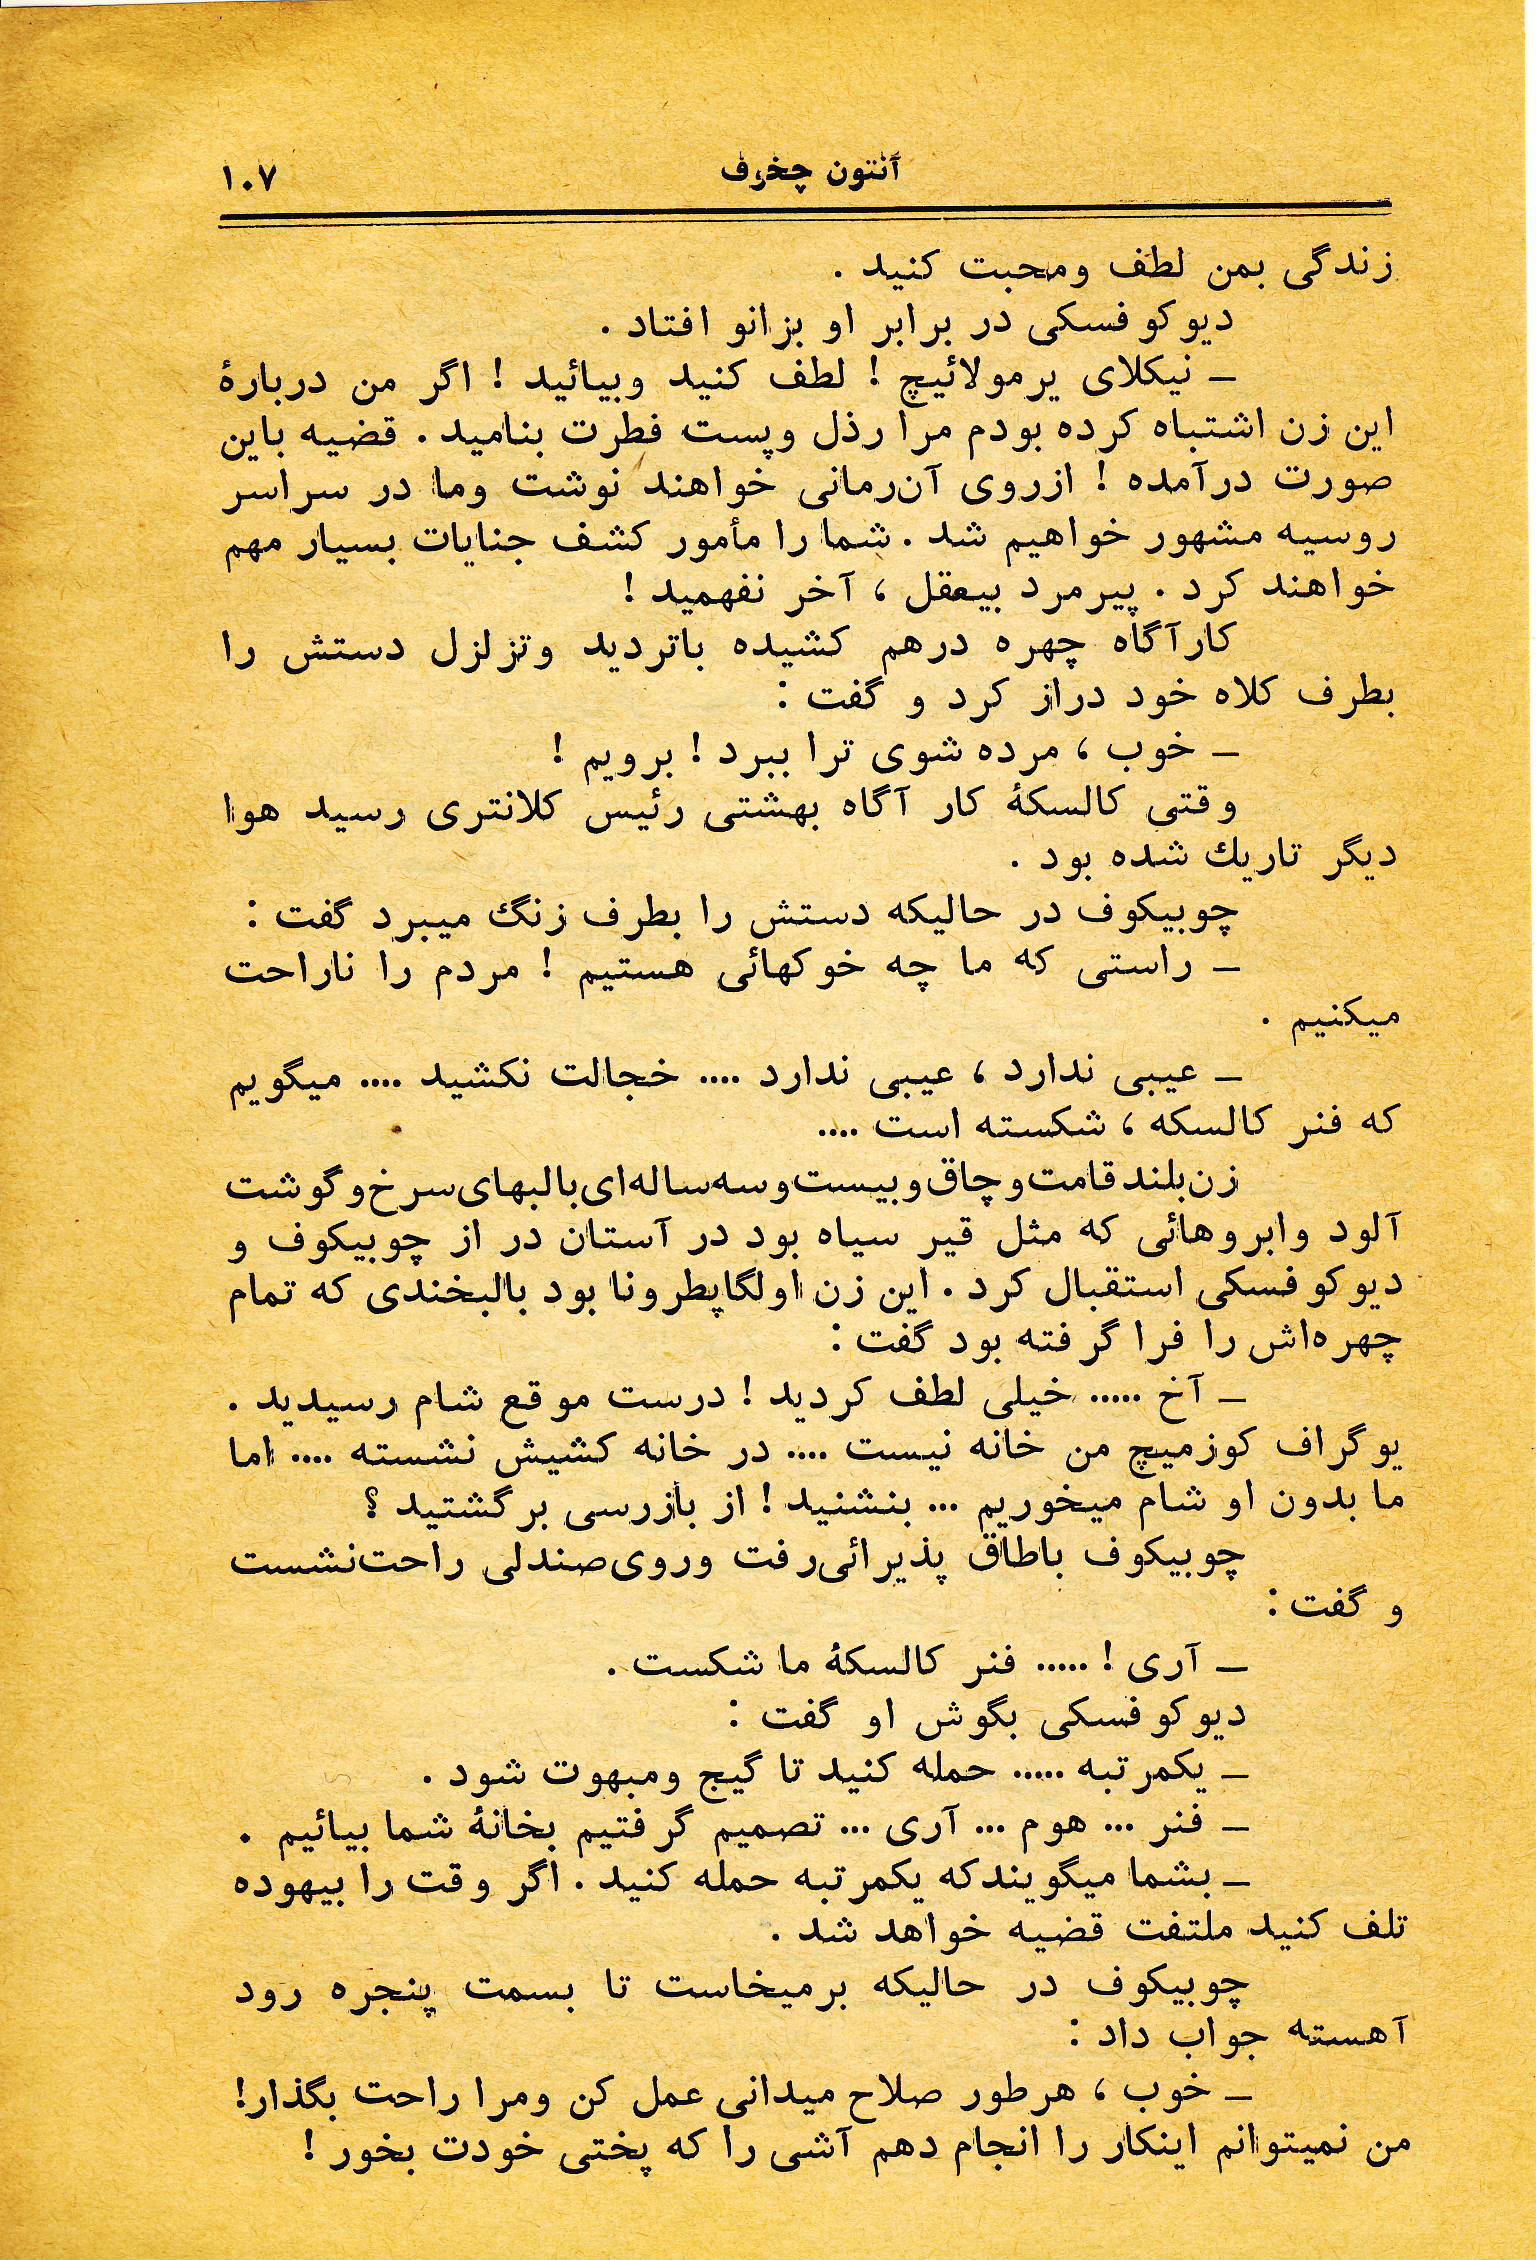 آنتون چخوف ۱۰۷
زندگی بمن لطف ومحبت کنید .
دیوکوفسکی در برابر او بزانو افتاد .
ـ نیکلای یرمولائیچ ! لطف کنید وبیائید ! اگر من دربارهٔ
این زن اشتباه کرده بودم مرا رذل وپست فطرت بنامید . قضیه باین
صورت درآمده ! ازروی آن‌رمانی خواهند نوشت وما در سراسر
روسیه مشهور خواهیم شد . شما را مأمور کشف جنایات بسیار مهم
خواهند کرد . پیرمرد بیعقل ، آخر نفهمید !
کارآگاه چهره درهم کشیده باتردید وتزلزل دستش را
بطرف کلاه خود دراز کرد و گفت :
ـ خوب ، مرده شوی ترا ببرد ! برویم !
وقتی کالسکهٔ کار آگاه بهشتی رئیس کلانتری رسید هوا
دیگر تاریك شده بود .
چوبیکوف در حالیکه دستش را بطرف زنگ میبرد گفت :
ـ راستی که ما چه خوکهائی هستیم ! مردم را ناراحت
میکنیم .
ـ عیبی ندارد ، عیبی ندارد .... خجالت نکشید .... میگویم
که فنر کالسکه ، شکسته است ....
زن‌بلند قامت و چاق و بیست و سه ساله‌ای بالبهای سرخ و گوشت
آلود وابروهائی که مثل قیر سیاه بود در آستان در از چوبیکوف و
دیوکوفسکی استقبال کرد . این زن اولگاپطرونا بود بالبخندی که تمام
چهره‌اش را فرا گرفته بود گفت :
ـ آخ ..... خیلی لطف کردید ! درست موقع شام رسیدید .
یوگراف کوزمیچ من خانه نیست .... در خانه کشیش نشسته .... اما
ما بدون او شام میخوریم ... بنشنید ! از بازرسی برگشتید ؟
چوبیکوف باطاق پذیرائی‌رفت وروی‌صندلی راحت‌نشست
و گفت :
ـ آری ! ..... فنر کالسکهٔ ما شکست .
دیوکوفسکی بگوش او گفت :
ـ یکمرتبه ..... حمله کنید تا گیج ومبهوت شود .
ـ فنر ... هوم ... آری ... تصمیم گرفتیم بخانهٔ شما بیائیم .
ـ بشما میگویندکه یکمرتبه حمله کنید . اگر وقت را بیهوده
تلف کنید ملتفت قضیه خواهد شد .
چوبیکوف در حالیکه برمیخاست تا بسمت پنجره رود
آهسته جواب داد :
ـ خوب ، هرطور صلاح میدانی عمل کن ومرا راحت بگذار!
من نمیتوانم اینکار را انجام دهم آشی را که پختی خودت بخور !